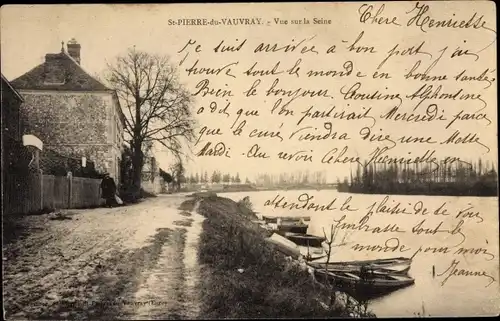 St-PIERRE-du-VAUVRAY. - Vue sur la Seine
Chère Henriette
Je suis arrivée à bon port j'ai
trouvé tout le monde en bonne santé
le bonjour. Cousine
a dit que l'on partirait Mercredi parce
que le curé viendra dire une Messe
Mardi - Au revoir Chère Henriette en
attendant le plaisir de te voir
Embrasse tout le
monde pour moi
Jeanne